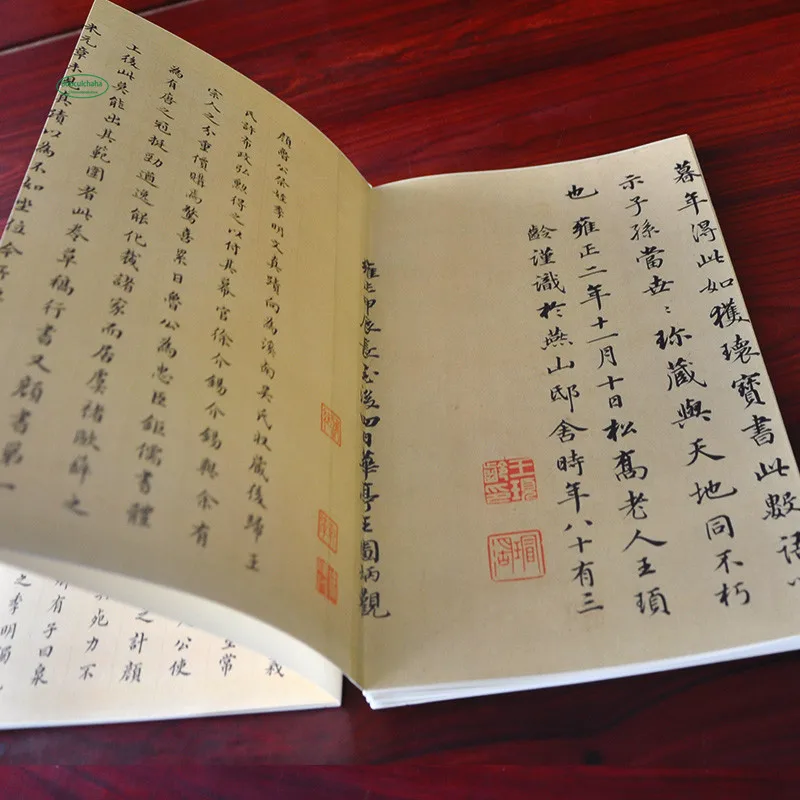 暮年得此如獲瓌寶書此數語以
示子孫當世：珍藏與天地同不朽
也雍正二年十一月十日松喬老人王頊
齡謹識於燕山邸舍時年八十有三
王頊齡印
瑁湖
雍正甲辰長至後四日華亭王圖炳觀
顏魯公祭姪季明文真蹟向為溪南吳氏收藏後歸王
氏許布政弘勲得之以付其幕官徐介錫介錫與余有
宗人之分重價購為驚喜累日魯公為忠臣鉅儒書體
為有唐之冠挺勁遒逸能化裁諸家而居虞褚歐薛之
上後此莫能出其範圍者此卷草稿行書又顏書第一
米元章未見真蹟以為不如坐位今
哉
常
公使
之計顏
死力不
有子曰泉
之季明